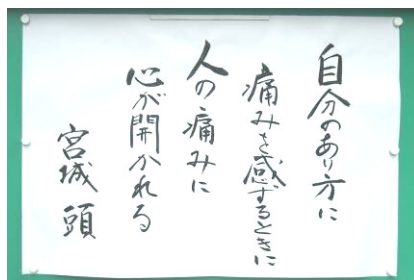 自分のあり方に
痛みを感ずるときに
人の痛みに
心が開かれる
宮城 顗